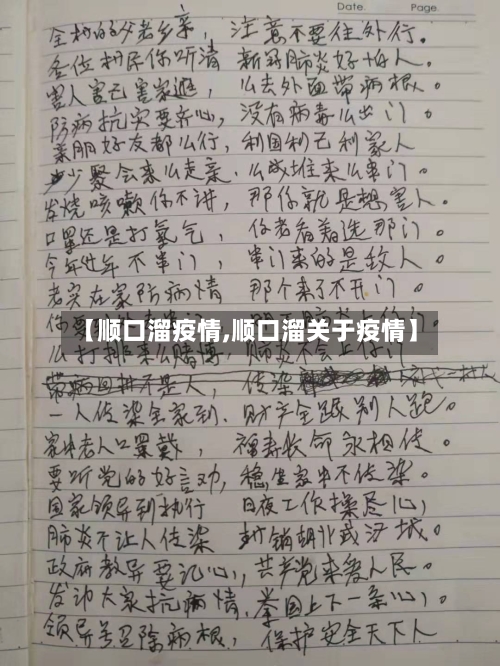 Date.          Page.
全村的父老乡亲，注意不要往外行。
各位村民你听清 新冠肺炎好怕人。
害人害己害家庭，么去外面带病根。
防病抗灾要齐心，没有病毒么出门。
亲朋好友都么行，利国利己利家人
少聚会来么走亲，么成堆来么串门。
发烧咳嗽你不讲，那你就是想害人。
口罩还是打氧气，你老看着选那门。
今年廿年不串门，串门来的是敌人。
老实在家防病情 那个来了不开门。
【顺口溜疫情,顺口溜关于疫情】
么打排来么赌博，肺炎不会上你门
不是人，传染
一人传染全家到，财产全跟别人跑。
家中老人口罩戴，福寿长命永相伴。
要听党的好言劝，稳坐家中不传染。
国家领导到执行 日夜工作操尽心，
肺炎不让人传染 封锁湖北武汉城。
政府教导要记心，共产党来爱人民。
发动大家抗病情，举国上下一条心，
领导 除病根，保护安全天下人